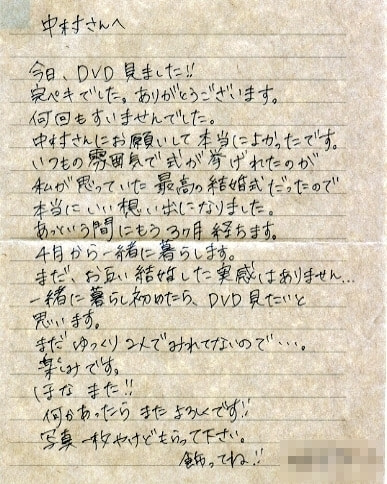 中村さんへ
今日、DVD 見ました!!
完ペキでした。ありがとうございます。
何回もすいませんでした。
中村さんにお願いして本当によかったです。
いつもの雰囲気で式が挙げれたのが
私が思っていた最高の結婚式だったので
本当にいい想い出になりました。
あっという間にもう3ヶ月経ちます。
4月から一緒に暮らします。
まだ、お互い結婚した実感はありません…
一緒に暮らし初めたら、DVD見たいと
思います。
まだゆっくり2人でみれてないので・・・。
楽しみです。
ほな また!!
何かあったら またよろしくです!!
写真一枚やけどもらって下さい。
飾ってね!!